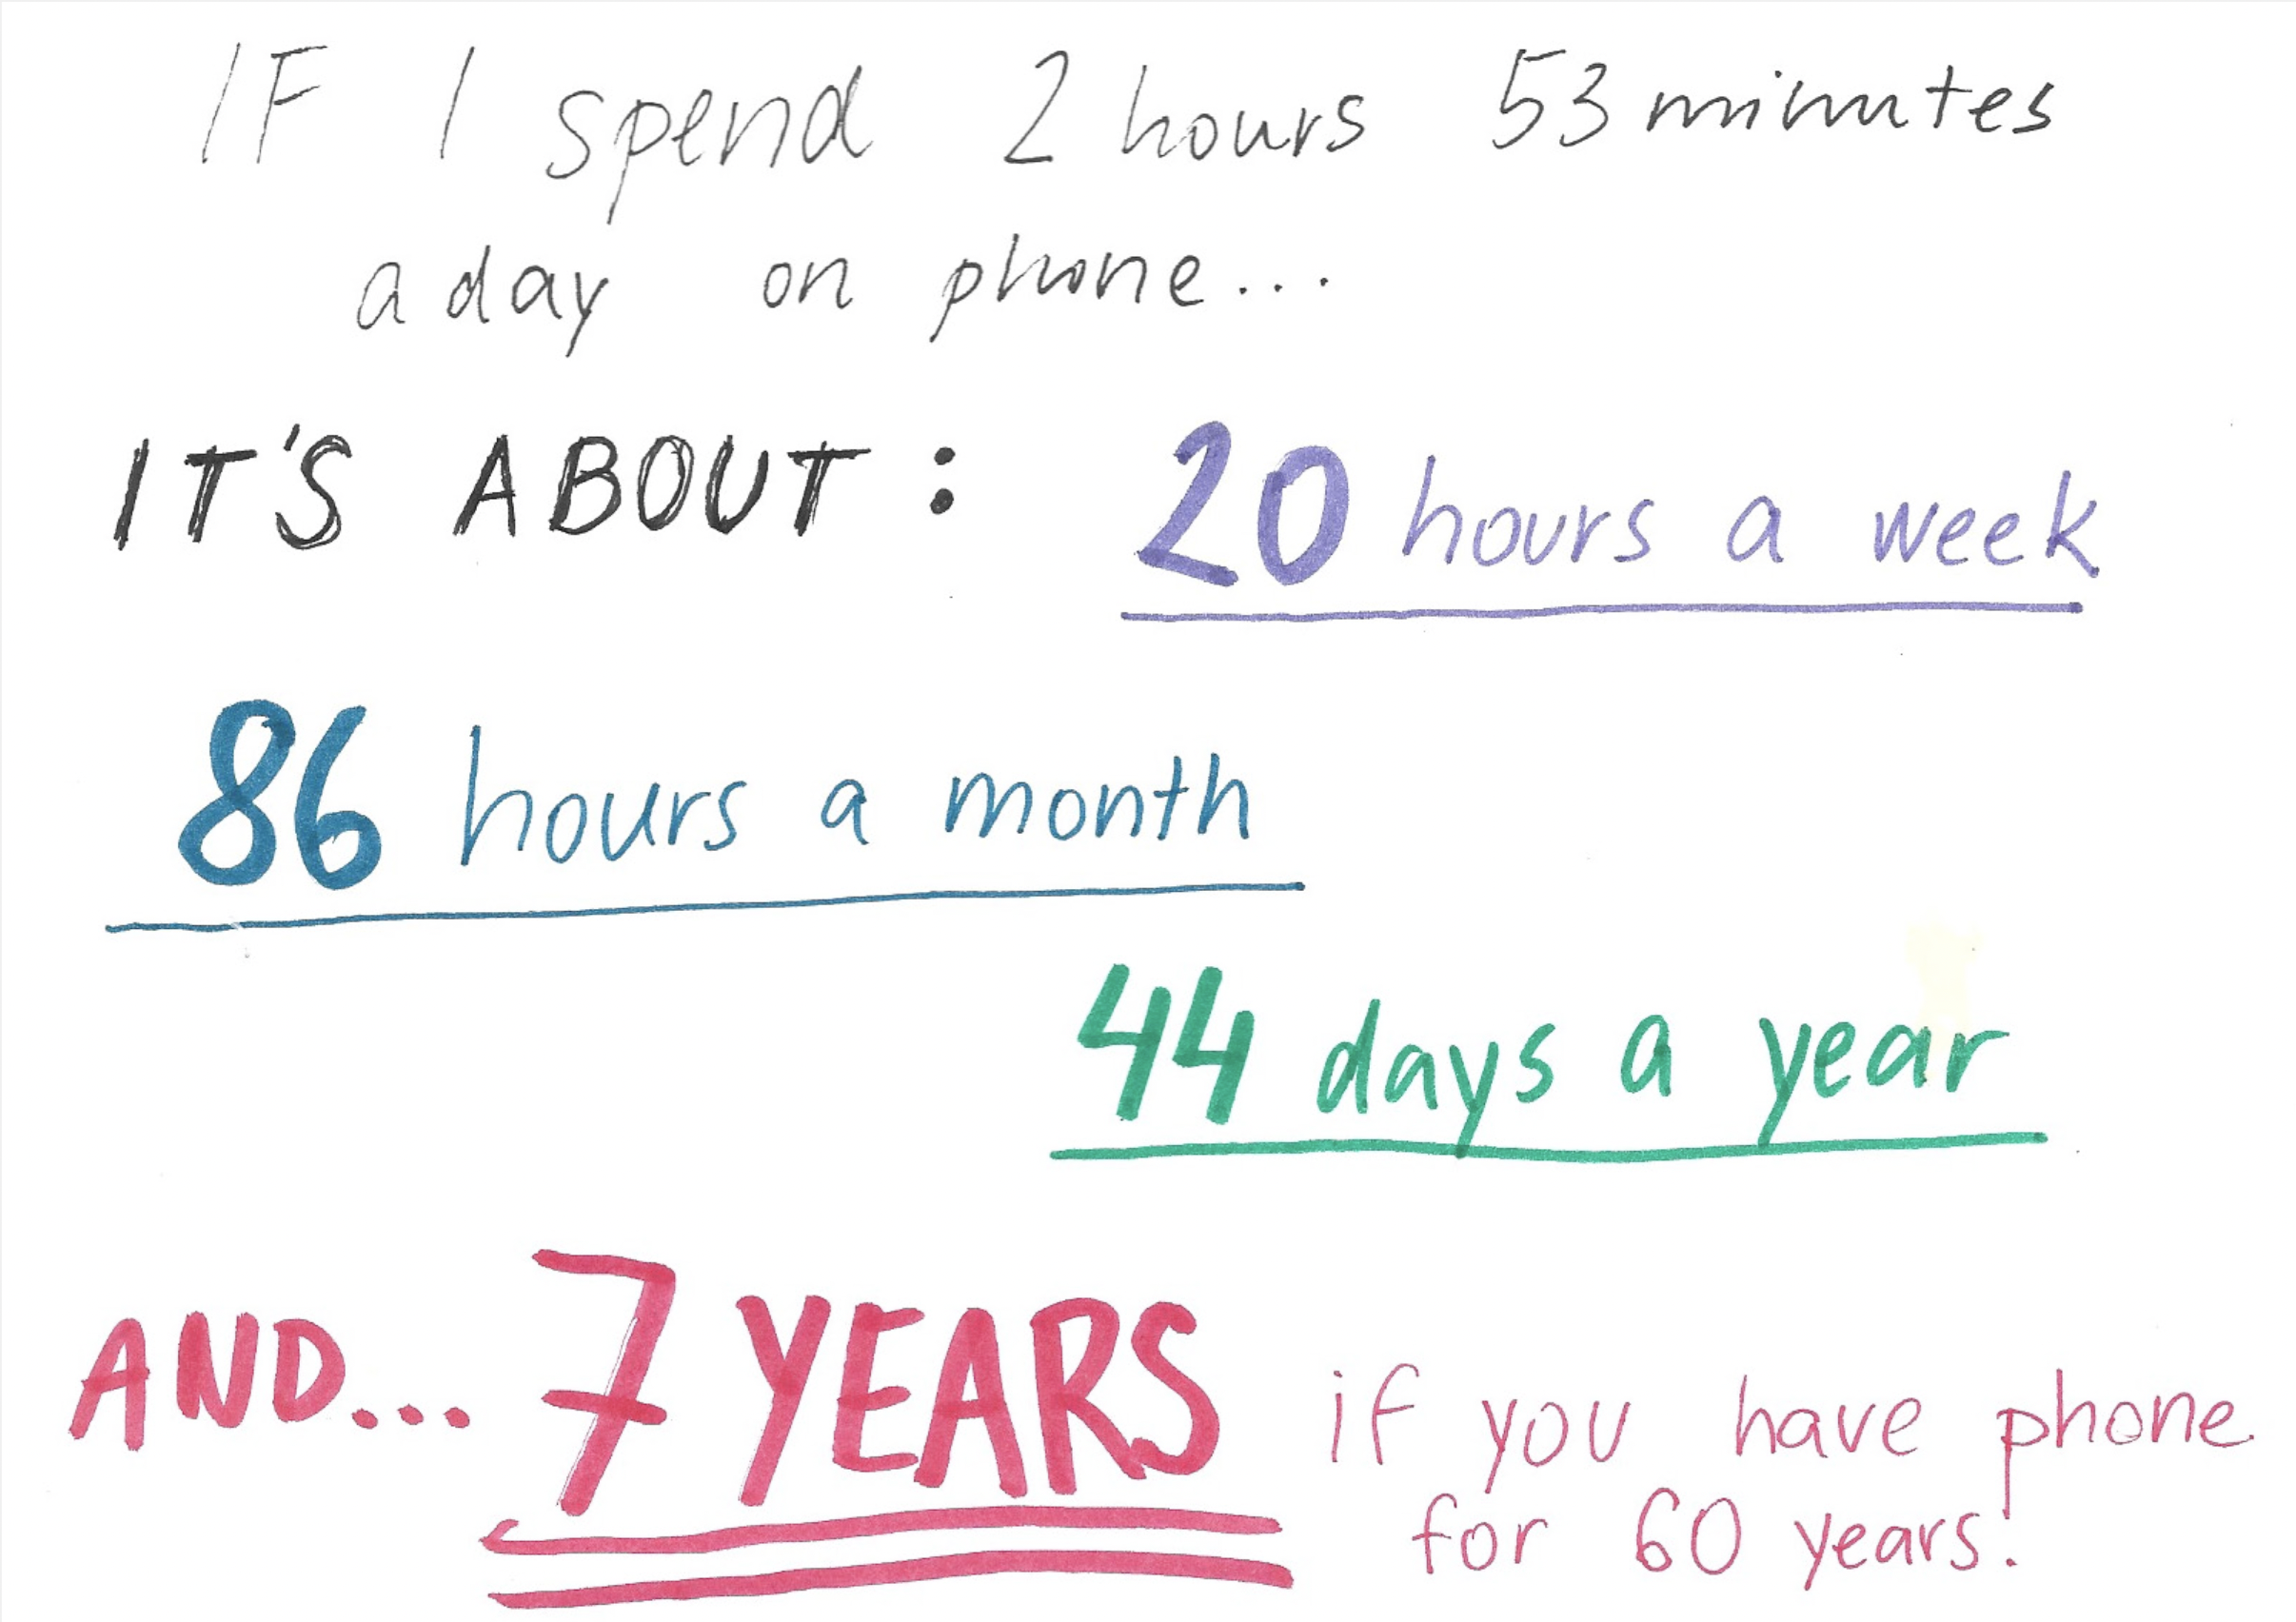 IF I spend 2 hours 53 minutes
a day on phone...
IT'S ABOUT: 20 hours a week
86 hours a month
44 days a year
AND... 7 YEARS if you have phone
for 60 years!